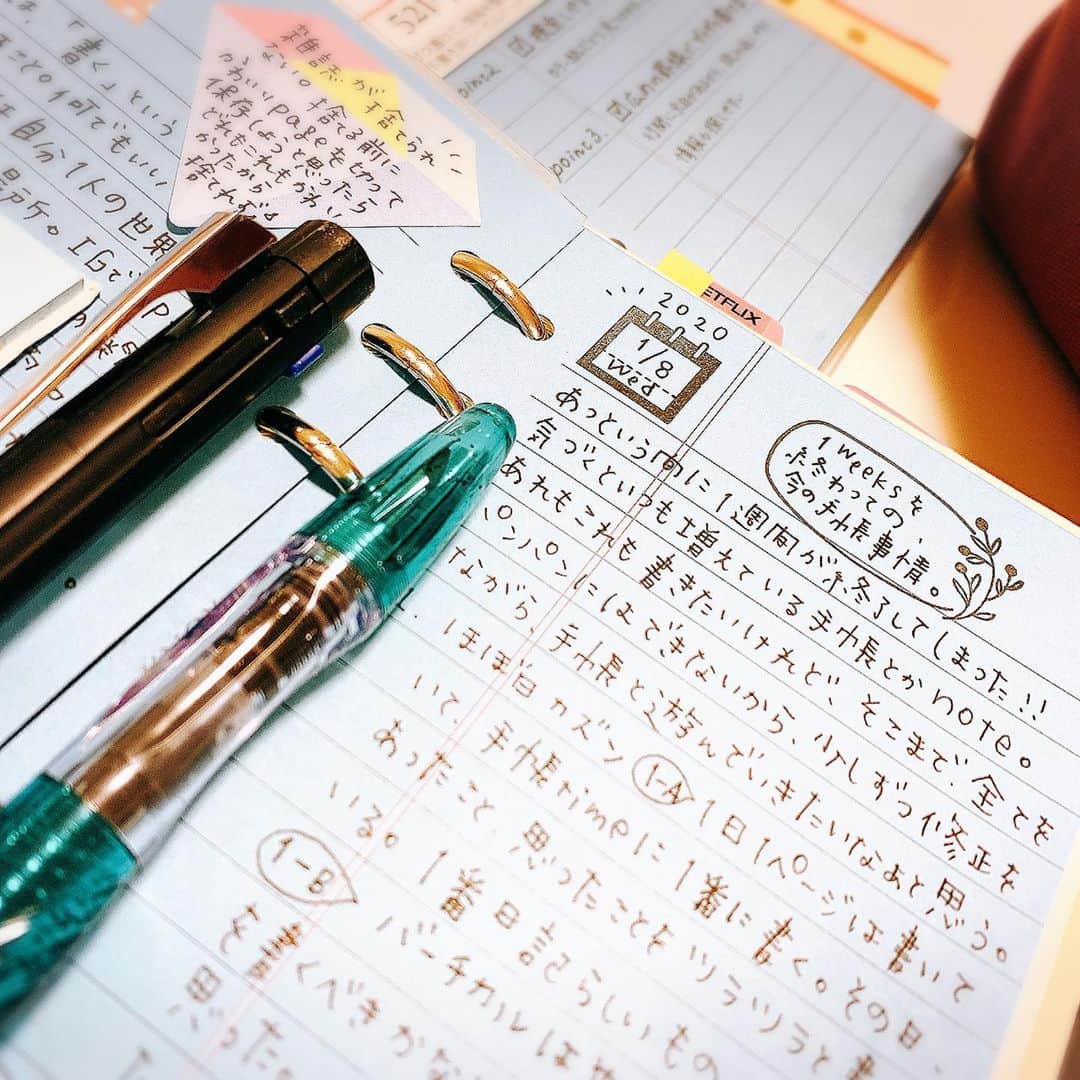 「書く」という
こと。何でもいい
は自分1人の世界
場所。IGで
雑誌が捨てられ
ない。捨てる前に
かわいいpageを切って
保存しようと思ったら
どれもこれもかわい
かったから
捨てれず。
521
point2
point3.
ETFLIX
2020
1/8
Wed-
1weeksを
終わっての、
今の手帳事情。
あっという間に1週間が終了してしまった!!
気づくといつも増えている手帳とかnote。
あれもこれも書きたいけれど、そこまで全てを
パンパンにはできないから、少しずつ修正を
ながら、手帳と遊んでいきたいなぁと思う。
ほぼ日カズン 1-A 1日1ページは書いて
いて、手帳timeに1番に書く。その日
あったこと、思ったことをツラツラと書
いる。1番日記らしいもの
1-B バーチカルはや
を書くべきかな
思った